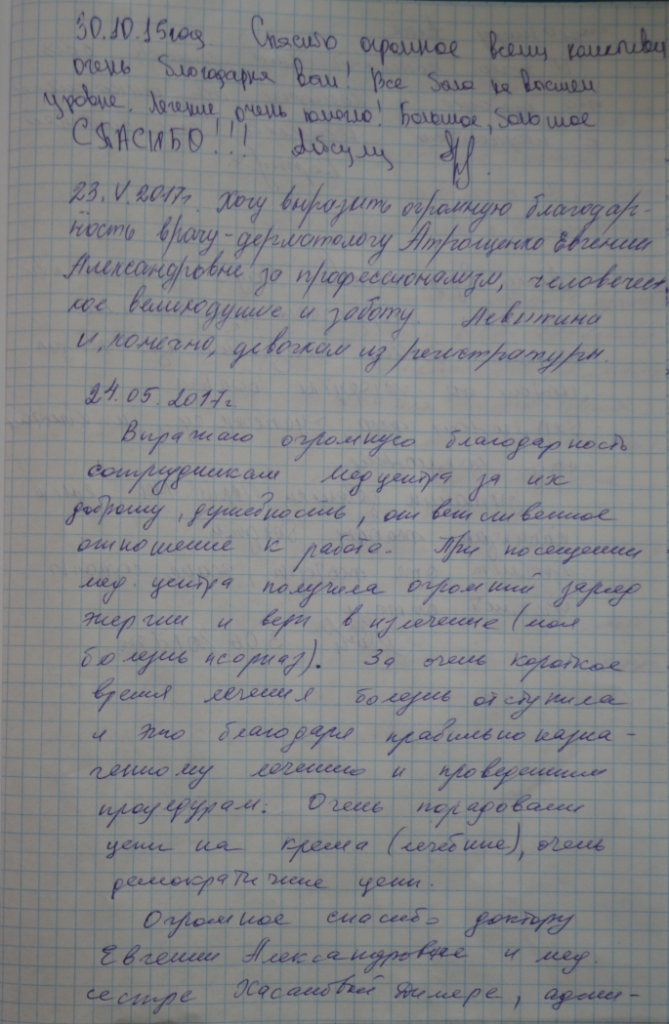 30.10.15год. Спасибо огромное всему
очень благодарна вам! Все было на высшем
уровне. Лечение очень помогло! Большое, большое
СПАСИБО!!!
23.V.2017г. Хочу выразить огромную благодар-
ность врачу-дерматологу Атрощенко Евгении
Александровне за профессионализм, человечес-
кое великодушие и заботу. Левыкина
И, конечно, девочкам из регистратуры.
24.05.2017г.
Выражаю огромную благодарность
сотрудникам медцентра за их
доброту, душевность, ответственное
отношение к работе. При посещении
мед. центра получила огромный заряд
энергии и веры в излечение (моя
болезнь псориаз). За очень короткое
время лечения болезнь отступила
и это благодаря правильно назна-
ченному лечению и проведенным
процедурам. Очень порадовали
цены на крема (лечебные), очень
демократичные цены.
Огромное спасибо доктору
Евгении Александровне и мед.
сестре Хасановой Дилере, адми-